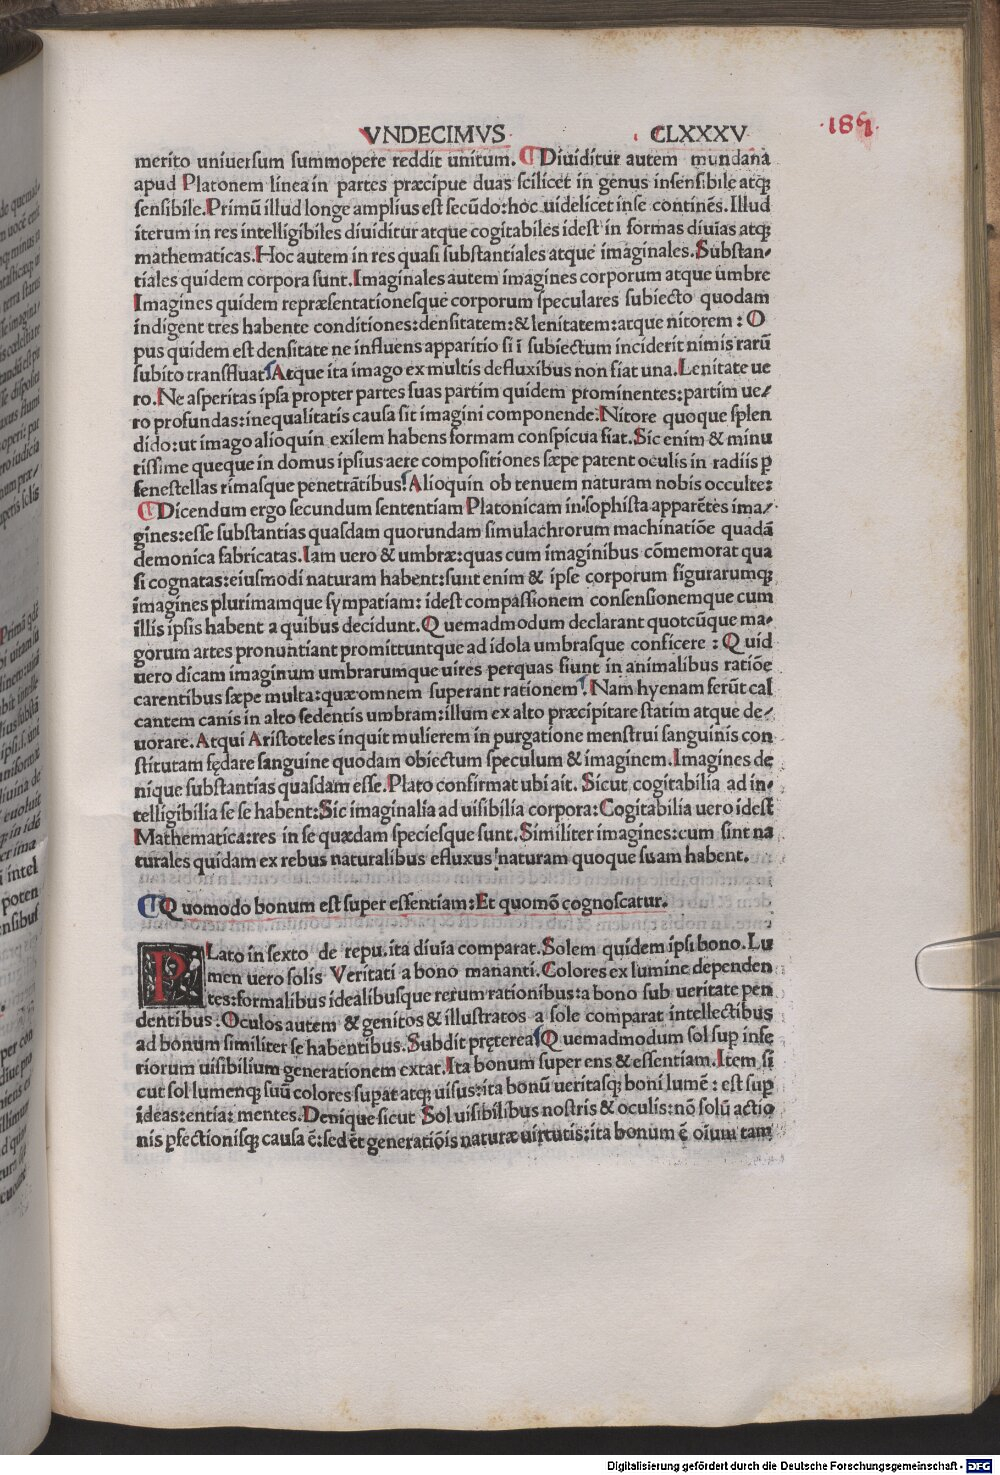 VNDECIMVS CLXXXV ·185·
merito uniuersum summopere reddit unitum. Diuiditur autem mundana
apud Platonem linea in partes præcipue duas scilicet in genus insensibile atqꝫ
sensibile. Primū illud longe amplius est secūdo: hoc uidelicet inse continēs. Illud
iterum in res intelligibiles diuiditur atque cogitabiles idest in formas diuias atqꝫ
mathematicas. Hoc autem in res quasi substantiales atque imaginales. Substan-
tiales quidem corpora sunt. Imaginales autem imagines corporum atque umbre
Imagines quidem repræsentationesque corporum speculares subiecto quodam
indigent tres habente conditiones: densitatem: & lenitatem: atque nitorem: O
pus quidem est densitate ne influens apparitio si ī subiectum inciderit nimis rarū
subito transfluat Atque ita imago ex multis defluxibus non fiat una. Lenitate ue
ro. Ne asperitas ipsa propter partes suas partim quidem prominentes: partim ue-
ro profundas: inequalitatis causa sit imagini componende. Nitore quoque splen
dido: ut imago alioquin exilem habens formam conspicua fiat. Sic enim & minu
tissime queque in domus ipsius aere compositiones sæpe patent oculis in radiis ꝑ
fenestellas rimasque penetrātibus. Alioquin ob tenuem naturam nobis occulte:
Dicendum ergo secundum sententiam Platonicam in sophista apparētes ima-
gines: esse substantias quasdam quorundam simulachrorum machinatiōe quadā
demonica fabricatas. Iam uero & umbræ: quas cum imaginibus cōmemorat qua
si cognatas: eiusmodi naturam habent: sunt enim & ipse corporum figurarumqꝫ
imagines plurimamque sympatiam: idest compassionem consensionemque cum
illis ipsis habent a quibus decidunt. Quemadmodum declarant quotcūque ma-
gorum artes pronuntiant promittuntque ad idola umbrasque conficere: Quid
uero dicam imaginum umbrarumque uires perquas fiunt in animalibus ratiōe
carentibus sæpe multa: quæ omnem superant rationem. Nam hyenam ferūt cal
cantem canis in alto sedentis umbram: illum ex alto præcipitare statim atque de-
uorare. Atqui Aristoteles inquit mulierem in purgatione menstrui sanguinis con
stitutam fędare sanguine quodam obiectum speculum & imaginem. Imagines de
nique substantias quasdam esse. Plato confirmat ubi ait. Sicut cogitabilia ad in-
telligibilia se se habent: Sic imaginalia ad uisibilia corpora: Cogitabilia uero idest
Mathematica: res in se quædam speciesque sunt. Similiter imagines: cum sint na
turales quidam ex rebus naturalibus efluxus naturam quoque suam habent.
Quomodo bonum est super essentiam: Et quomō cognoscatur.
PLato in sexto de repu. ita diuia comparat. Solem quidem ipsi bono. Lu
men uero solis Veritati a bono mananti. Colores ex lumine dependen
tes: formalibus idealibusque rerum rationibus: a bono sub ueritate pen
dentibus. Oculos autem & genitos & illustratos a sole comparat intellectibus
ad bonum similiter se habentibus. Subdit pręterea Quemadmodum sol suꝑ infe
riorum uisibilium generationem extat. Ita bonum super ens & essentiam. Item si
cut sol lumenqꝫ suū colores supat atqꝫ uisus: ita bonū ueritasqꝫ boni lumē: est suꝑ
ideas: entia: mentes. Denique sicut Sol uisibilibus nostris & oculis: nō solū actio
nis ꝑfectionisqꝫ causa ē: sed et generatiōis naturæ uirtutis: ita bonum ē oium tam
Digitalisierung gefördert durch die Deutsche Forschungsgemeinschaft - DFG